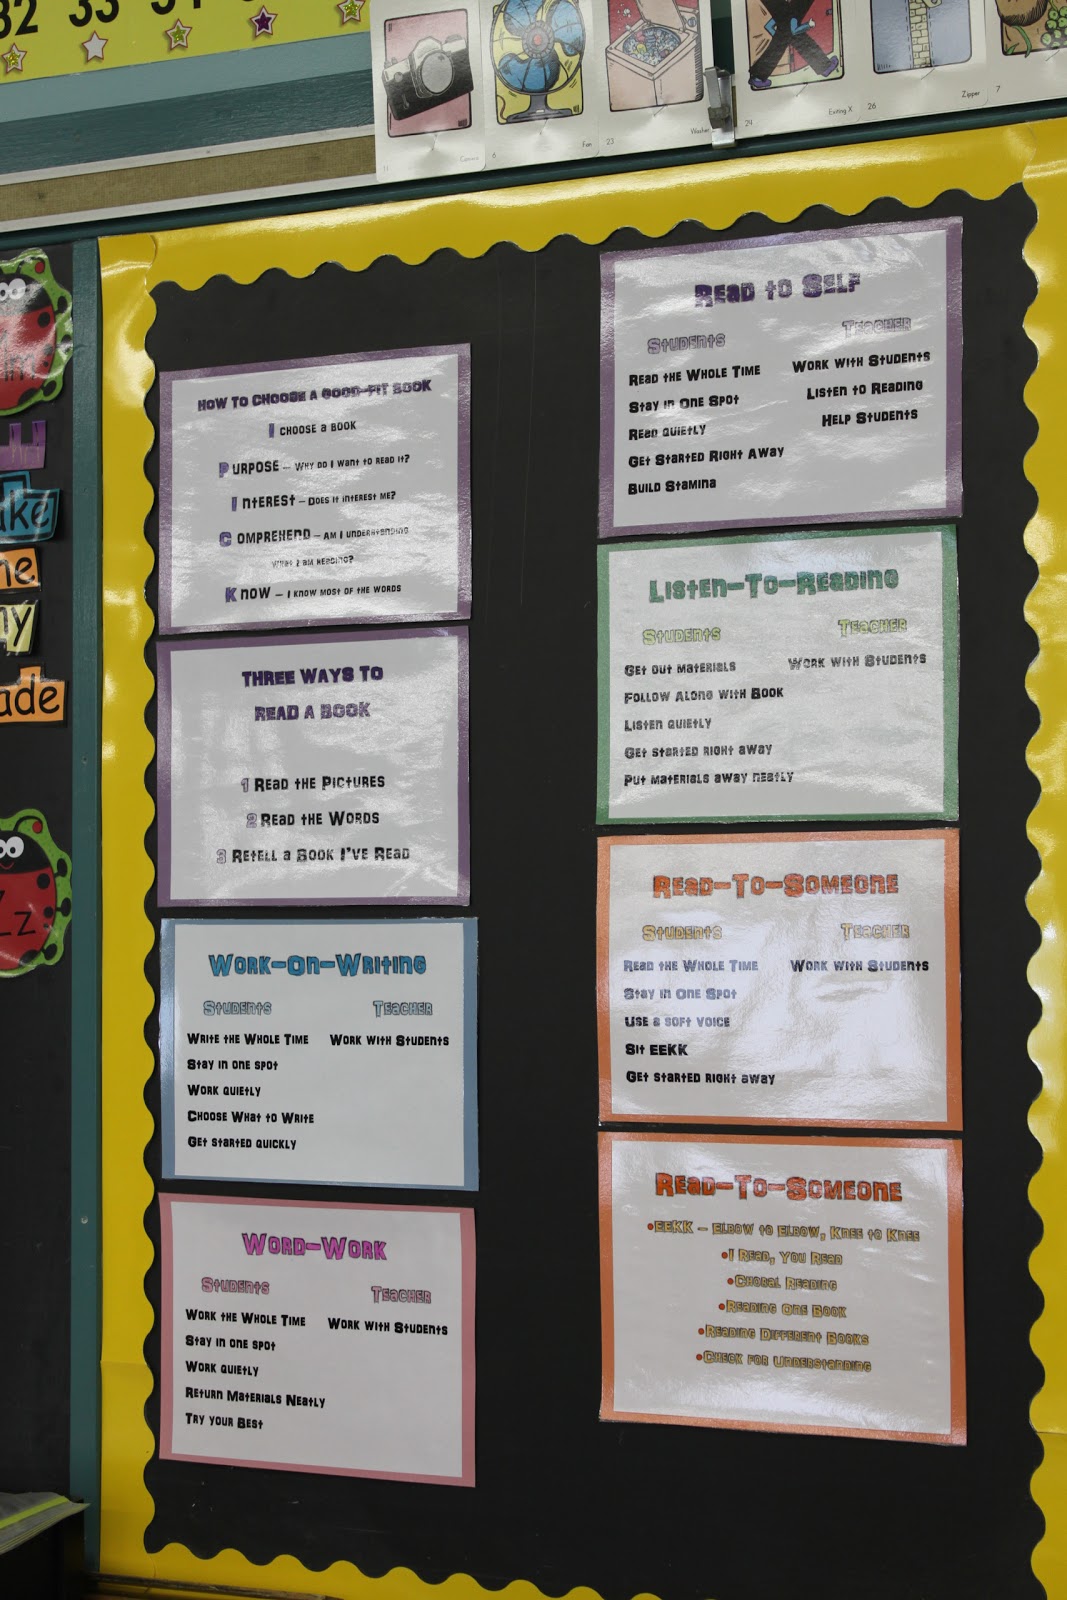 32 33
11 Camera
6 Fan
23 Washer
24 Exiting X
26 Zipper
7
ade
Zz
HOW TO CHOOSE A GOOD-FIT BOOK
I CHOOSE A BOOK
PURPOSE – WHY DO I WANT TO READ IT?
INTEREST – DOES IT INTEREST ME?
COMPREHEND – AM I UNDERSTANDING
WHAT I AM READING?
KNOW – I KNOW MOST OF THE WORDS
THREE WAYS TO
READ A BOOK
1 READ THE PICTURES
2 READ THE WORDS
3 RETELL A BOOK I'VE READ
WORK-ON-WRITING
STUDENTS TEACHER
WRITE THE WHOLE TIME WORK WITH STUDENTS
STAY IN ONE SPOT
WORK QUIETLY
CHOOSE WHAT TO WRITE
GET STARTED QUICKLY
WORD-WORK
STUDENTS TEACHER
WORK THE WHOLE TIME WORK WITH STUDENTS
STAY IN ONE SPOT
WORK QUIETLY
RETURN MATERIALS NEATLY
TRY YOUR BEST
READ TO SELF
STUDENTS TEACHER
READ THE WHOLE TIME WORK WITH STUDENTS
STAY IN ONE SPOT LISTEN TO READING
READ QUIETLY HELP STUDENTS
GET STARTED RIGHT AWAY
BUILD STAMINA
LISTEN-TO-READING
STUDENTS TEACHER
GET OUT MATERIALS WORK WITH STUDENTS
FOLLOW ALONG WITH BOOK
LISTEN QUIETLY
GET STARTED RIGHT AWAY
PUT MATERIALS AWAY NEATLY
READ-TO-SOMEONE
STUDENTS TEACHER
READ THE WHOLE TIME WORK WITH STUDENTS
STAY IN ONE SPOT
USE A SOFT VOICE
SIT EEKK
GET STARTED RIGHT AWAY
READ-TO-SOMEONE
•EEKK – ELBOW TO ELBOW, KNEE TO KNEE
•I READ, YOU READ
•CHORAL READING
•READING ONE BOOK
•READING DIFFERENT BOOKS
•CHECK FOR UNDERSTANDING